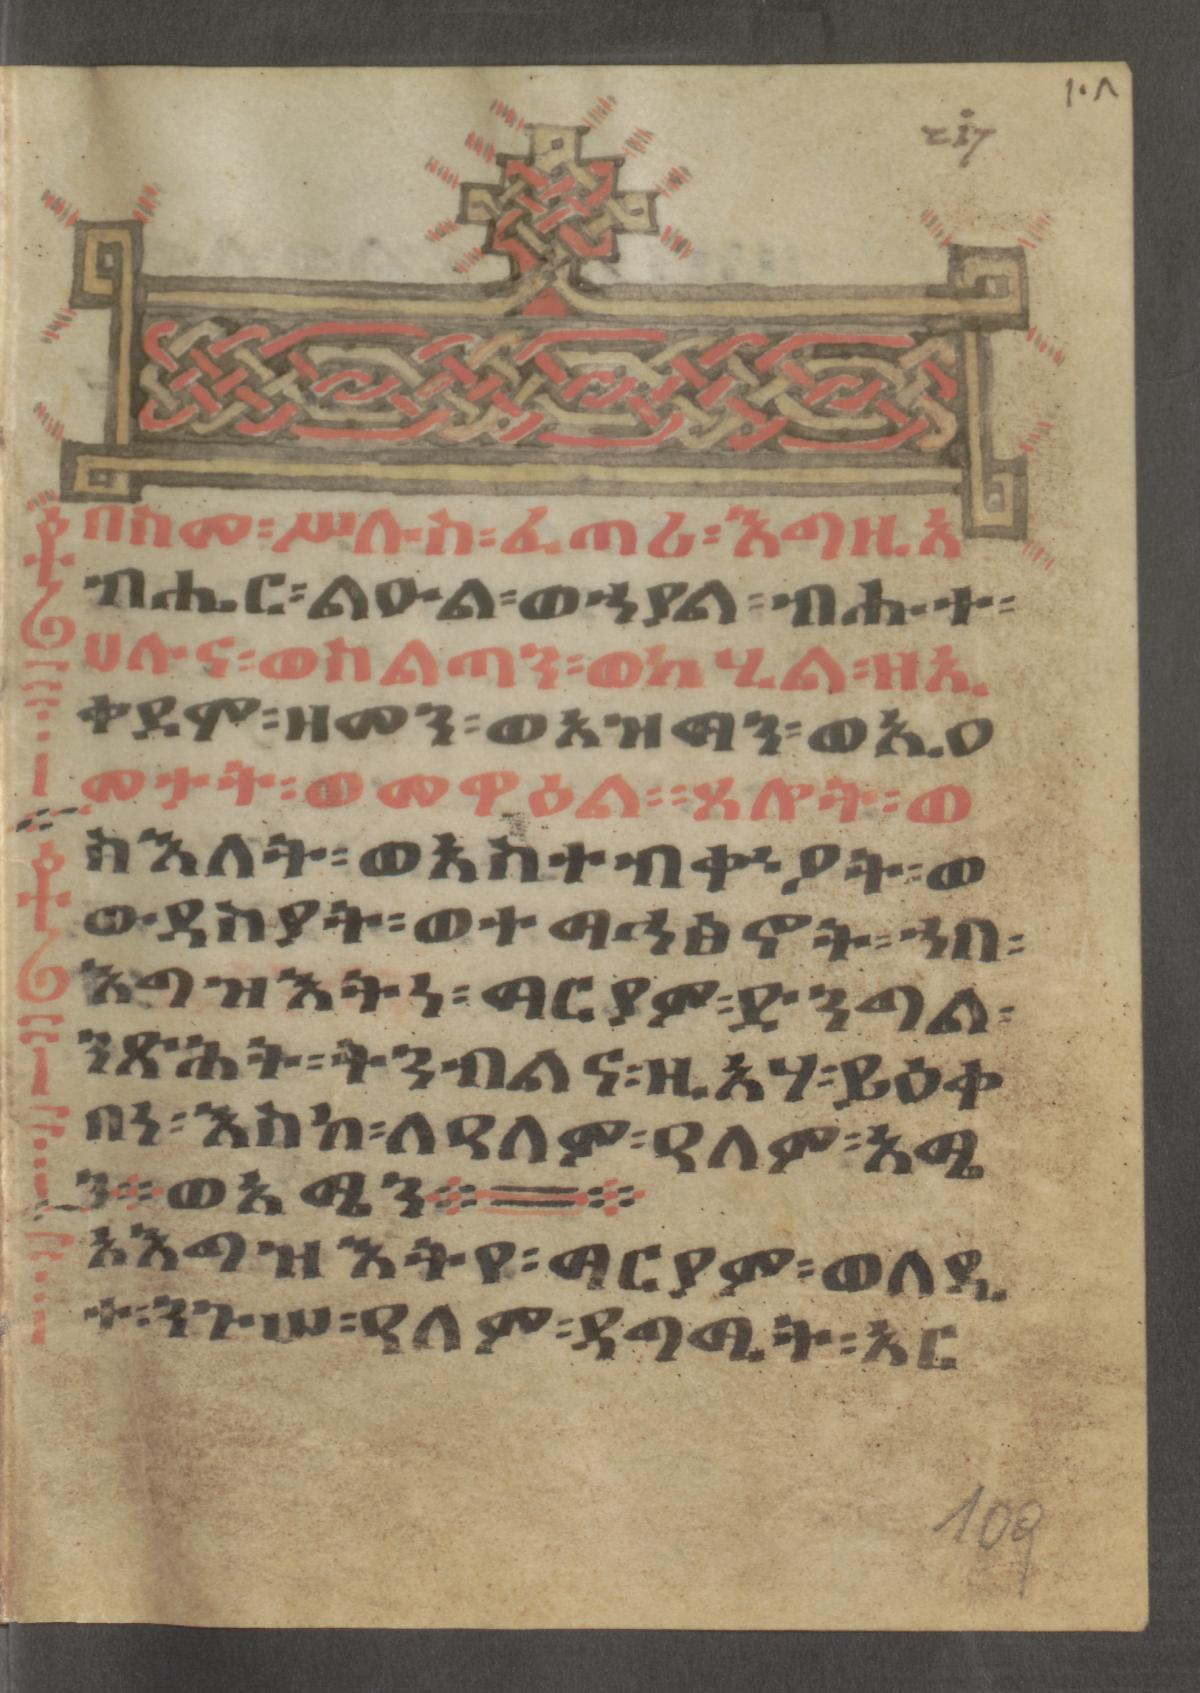 ፲፰
በከመ፡ሥሉስ፡ፈጣሪ፡እግዚአ
ብሔር፡ልዑል፡ወኃያል፡ብሑተ፡
ህሉና፡ወስልጣን፡ወክሂል፡ዘኢ
ቀደም፡ዘመን፡ወአዝማን፡ወኢዐ
መታት፡ወመዋዕል፡፡ጸሎት፡ወ
ስእለት፡ወአስተብቍዖት፡ወ
ውዳስያት፡ወተማኅፅኖት፡ኀበ፡
እግዝእትነ፡ማርያም፡ድንግል፡
ንጽሕት፡ትንብልና፡ዚአሃ፡ይዕቀ
በነ፡እስከ፡ለዓለም፡ዓለም፡አሜ
ን፡ወአሜን፡
አእግዝእትየ፡ማርያም፡ወላዲ
ተ፡ንጉሠ፡ዓለም፡ዳግሚት፡አር
109